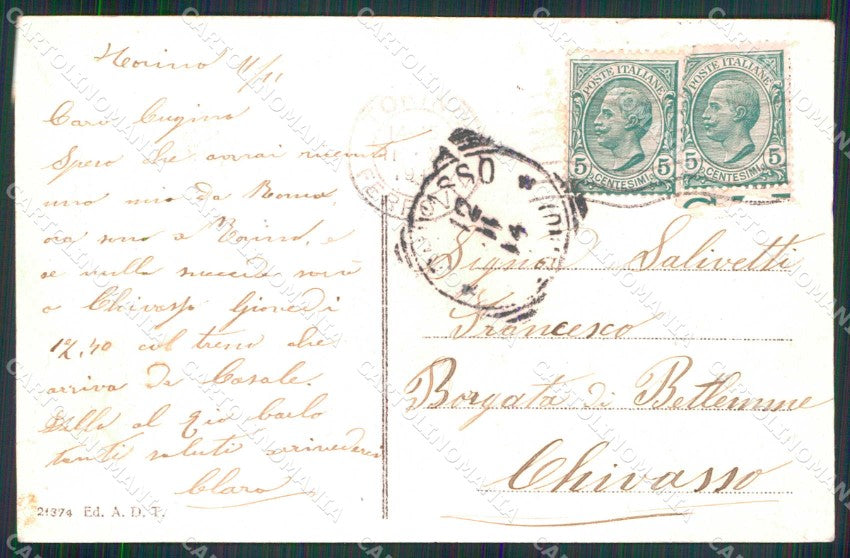 Torino 11/11
Caro Cugino
Spero che avrai ricevuto
uno mio da Roma,
ora sono a Torino, e
se nulla succede sarò
a Chivasso Giovedì
12,40 col treno che
arriva da Casale.
al
tanti saluti arrivederci
Clara
21374 Ed. A. D. T.
POSTE ITALIANE
5 CENTESIMI 5
POSTE ITALIANE
5 CENTESIMI 5
12
11
14
Signor Salivetti
Francesco
Borgata di Betlemme
Chivasso
CARTOLINOMANIA